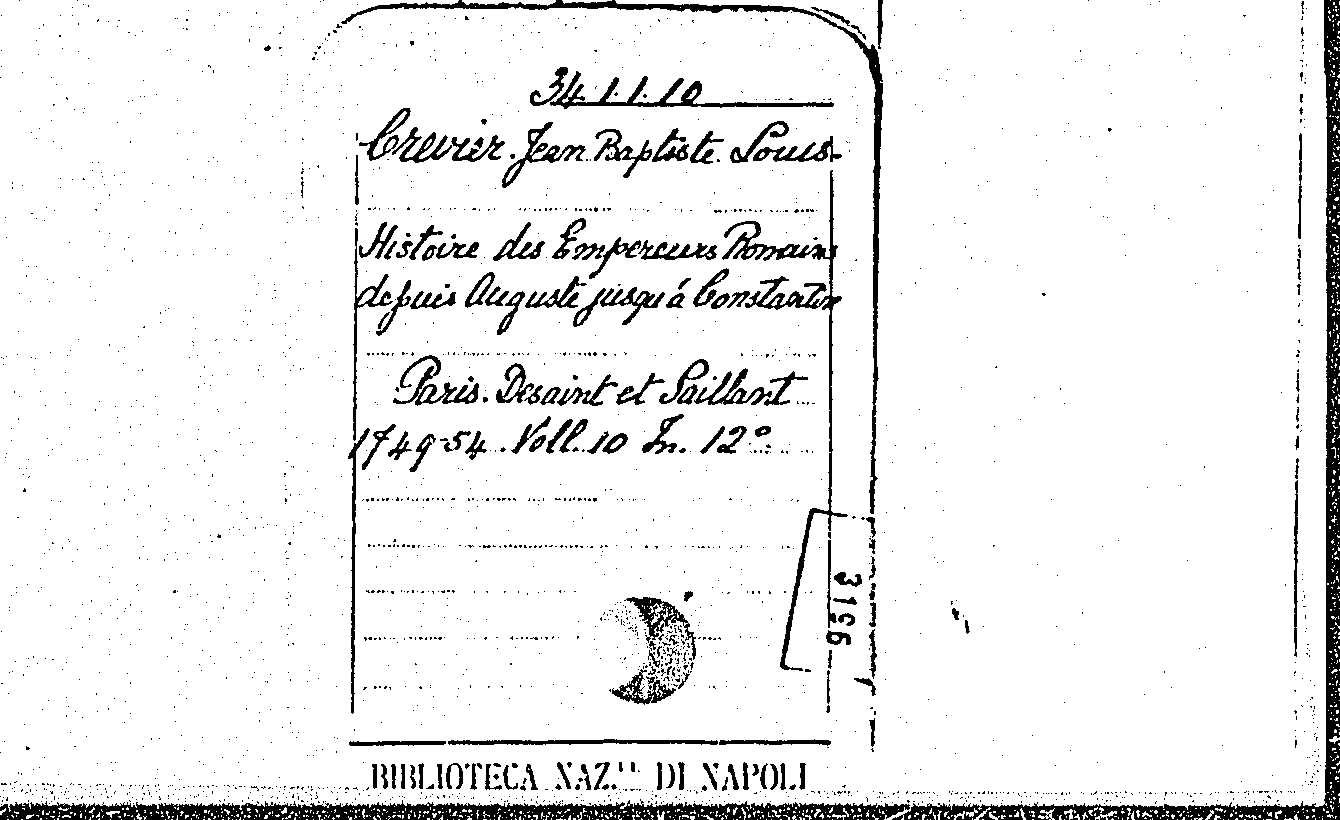 34.1.1.10
Crevier. Jean Baptiste. Louis-
Histoire des Empereurs Romains
depuis Auguste jusqu'á Constantin
Paris. Desaint et Saillant
1749-54. Voll. 10 In. 12º.
3156
BIBLIOTECA NAZ.LE DI NAPOLI